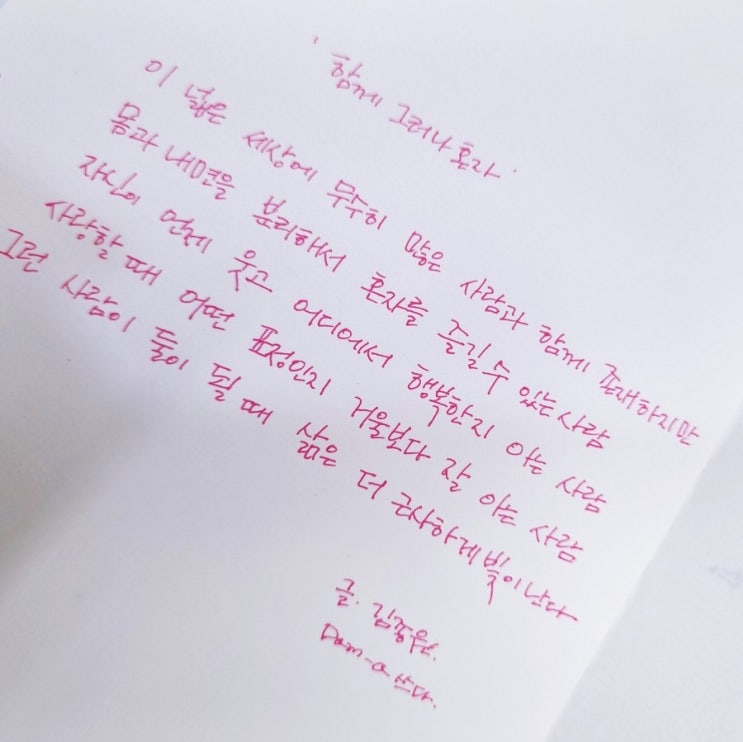 ' 함께 그러나 혼자 '
이 넓은 세상에 무수히 많은 사람과 함께 존재하지만
몸과 내면을 분리해서 혼자를 즐길 수 있는 사람
자신이 언제 웃고 어디에서 행복한지 아는 사람
사랑할 때 어떤 표정인지 거울보다 잘 아는 사람
그런 사람이 둘이 될 때 삶은 더 근사하게 빛이 난다
글. 김종원.
Dam-a 쓰다.